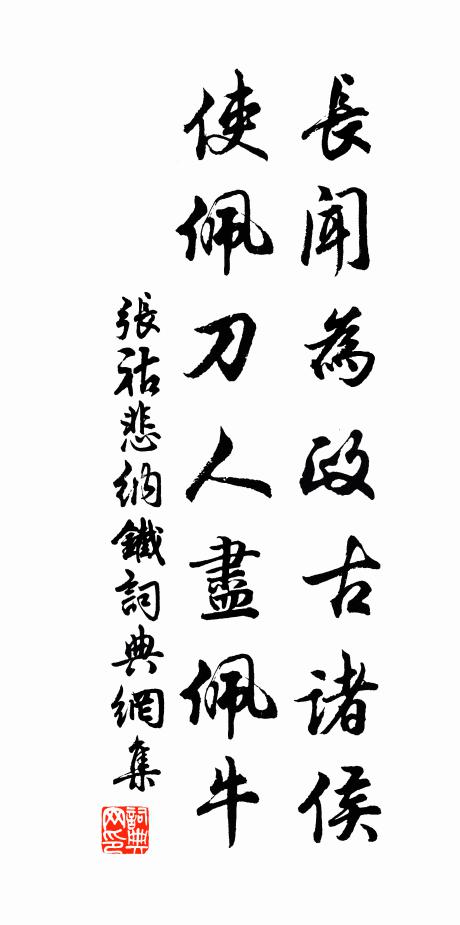 長聞為政古諸侯
使佩刀人盡佩牛
張祜悲納鐵詞典網集
詞典網印